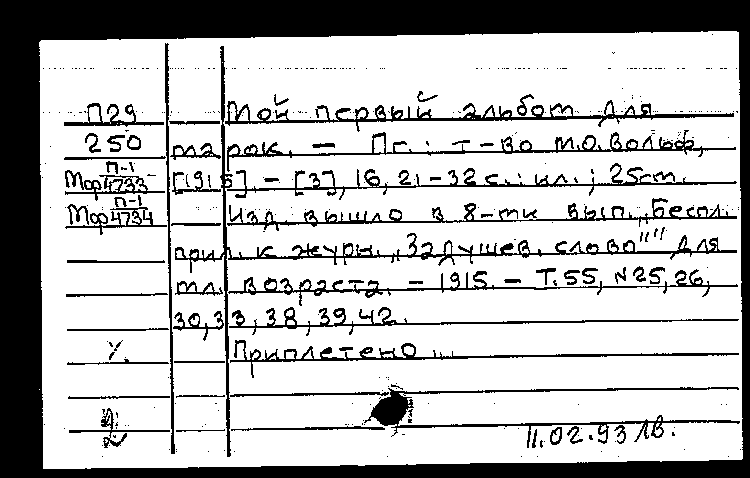 П29 Мой первый альбом для
250 марок. – Пг.: т-во М.О. Вольф,
Мор П-1/4733 [1915]. – [3], 16, 21-32 с.: ил.; 25см.
Мор П-1/4734 Изд. вышло в 8-ми вып. „Беспл.
прил. к журн. „Задушев. слово"" для
мл. возраста. – 1915. – Т.55, N25, 26,
30, 33, 38, 39, 42.
Приплетено...
11.02.93 ЛВ.